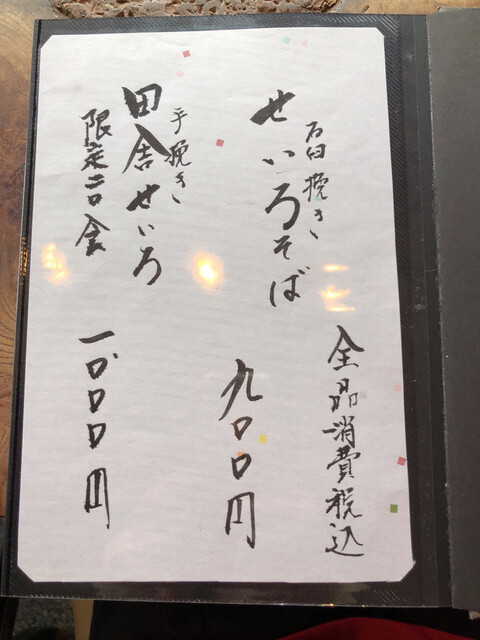 全品消費税込
石臼挽き
せいろそば
九〇〇円
手挽き
田舎せいろ
限定二〇食
一、〇〇〇円